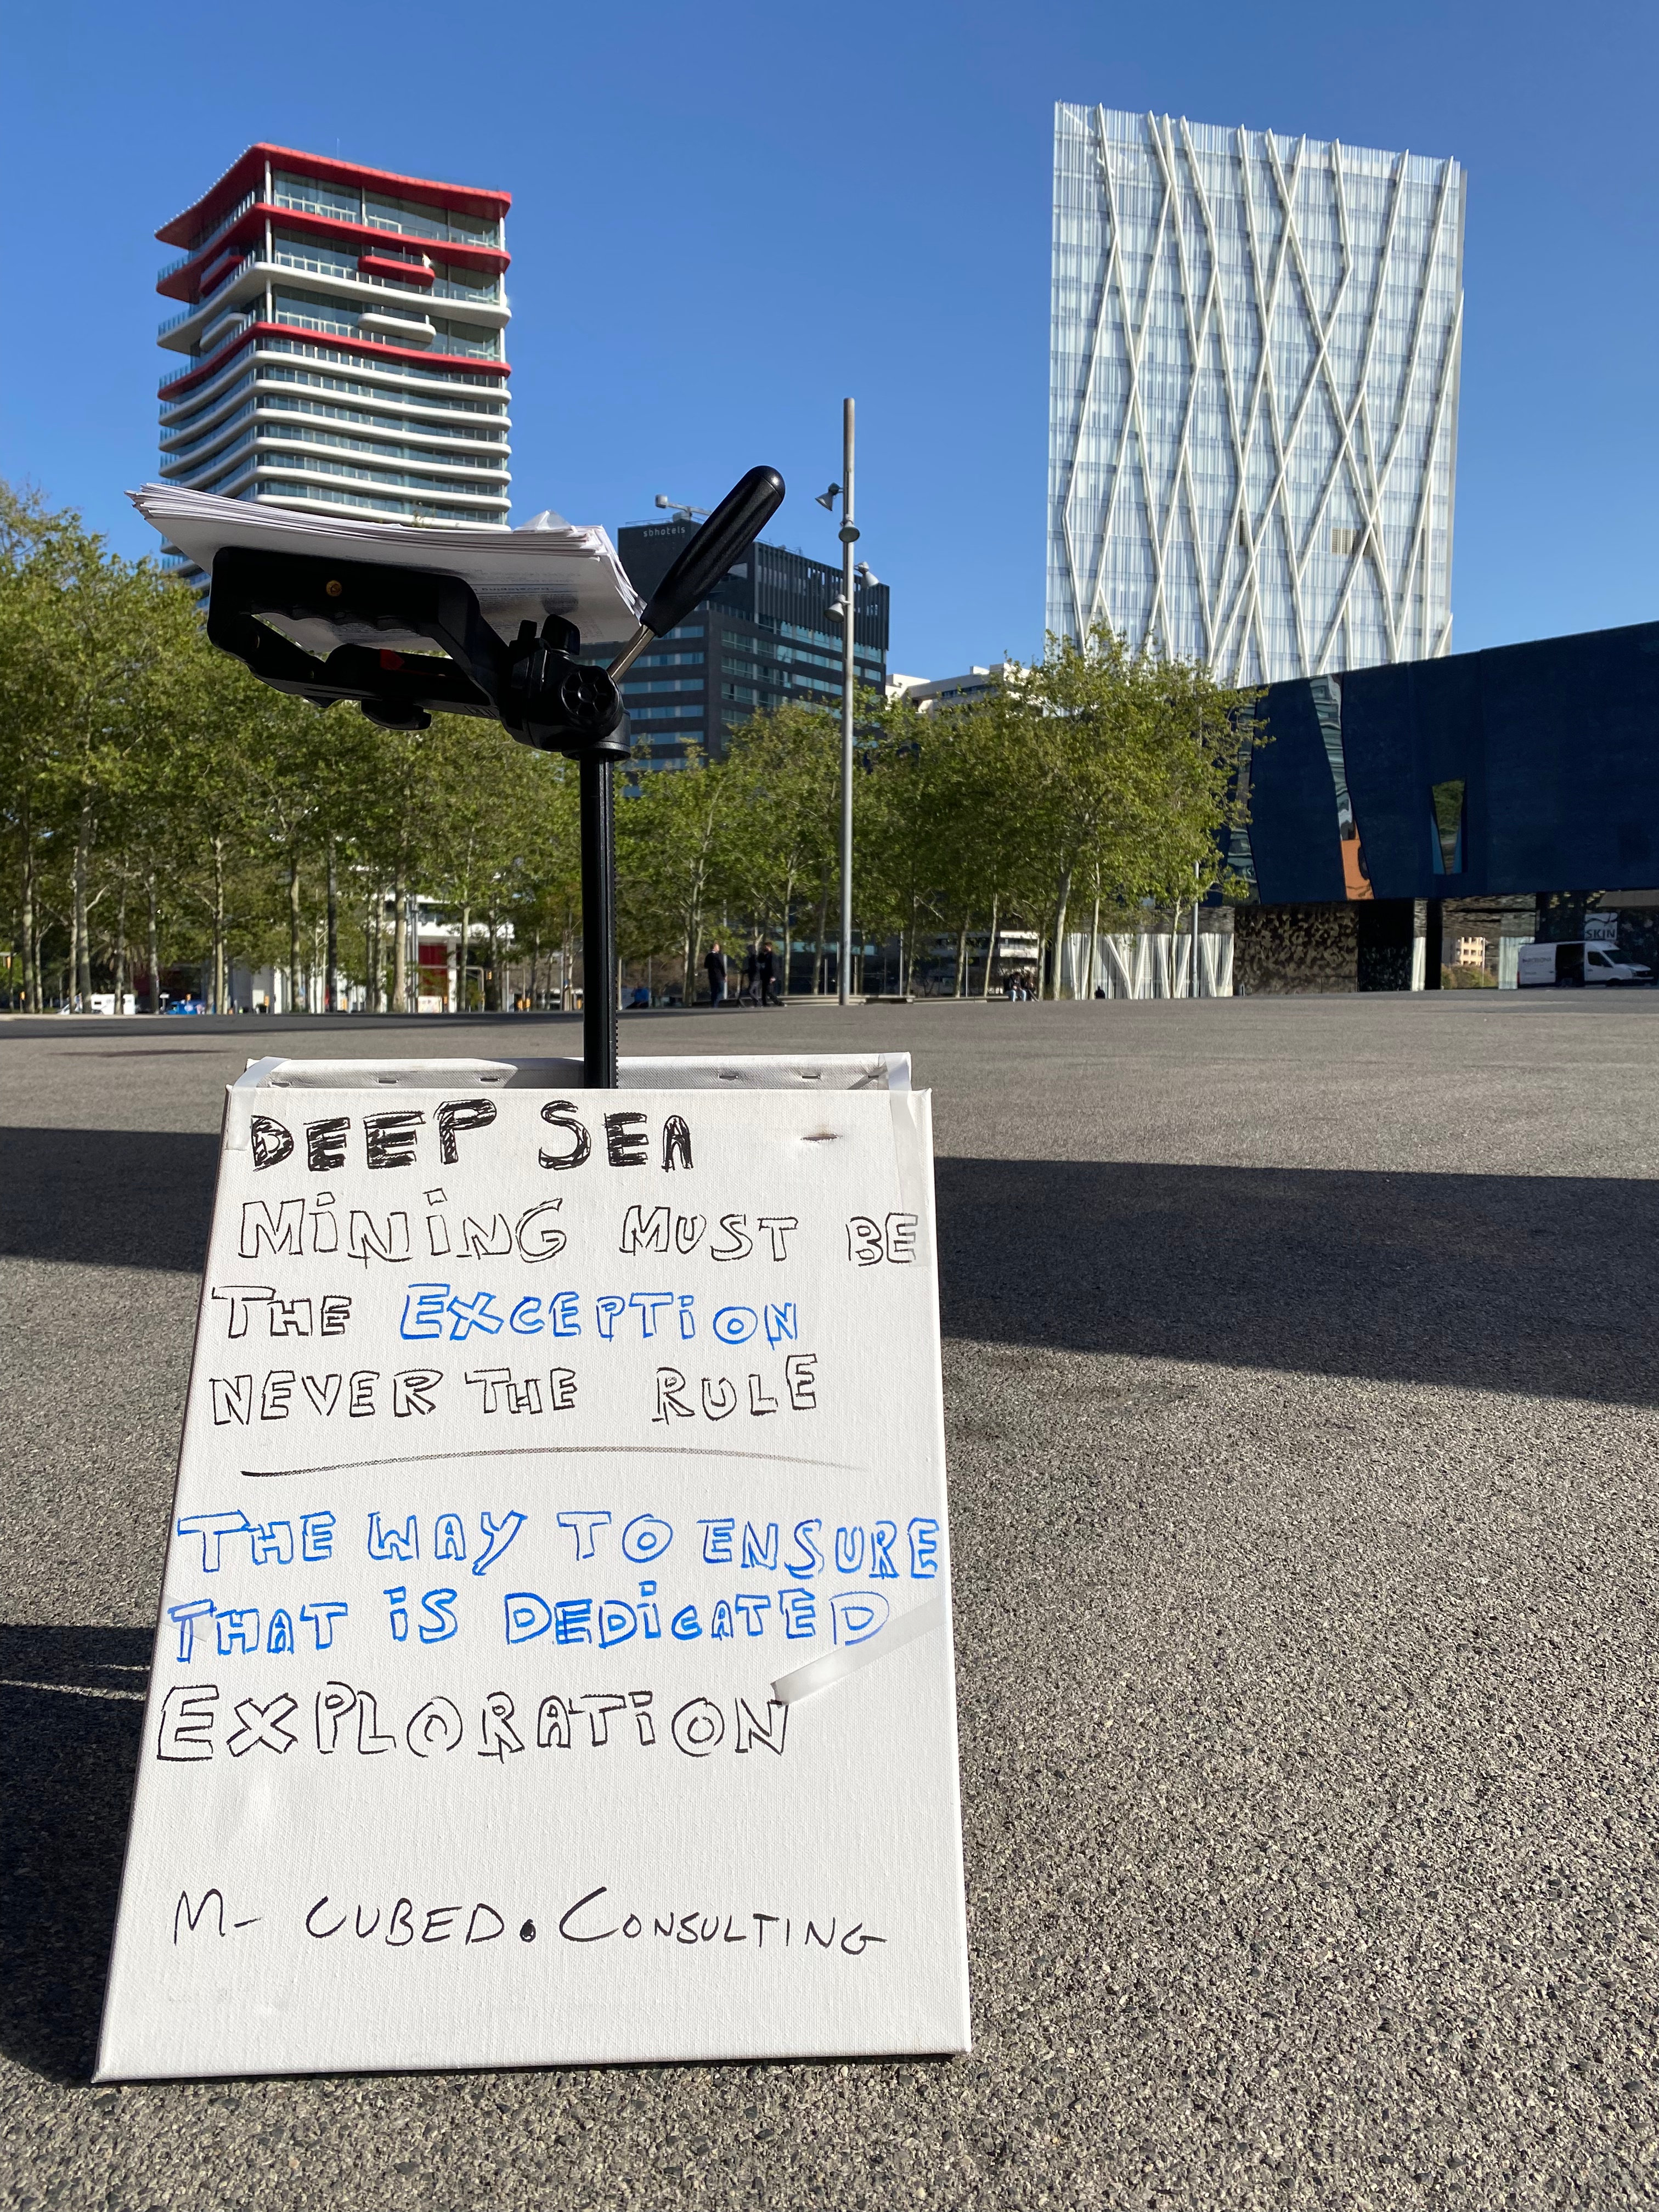 sbhotels
SKIN
DEEP SEA
MiNiNG MUST BE
THE EXCEPTiON
NEVER THE RULE
THE WAY TO ENSURE
THAT iS DEDiCATED
EXPLORATiON
M- CUBED.CONSULTING